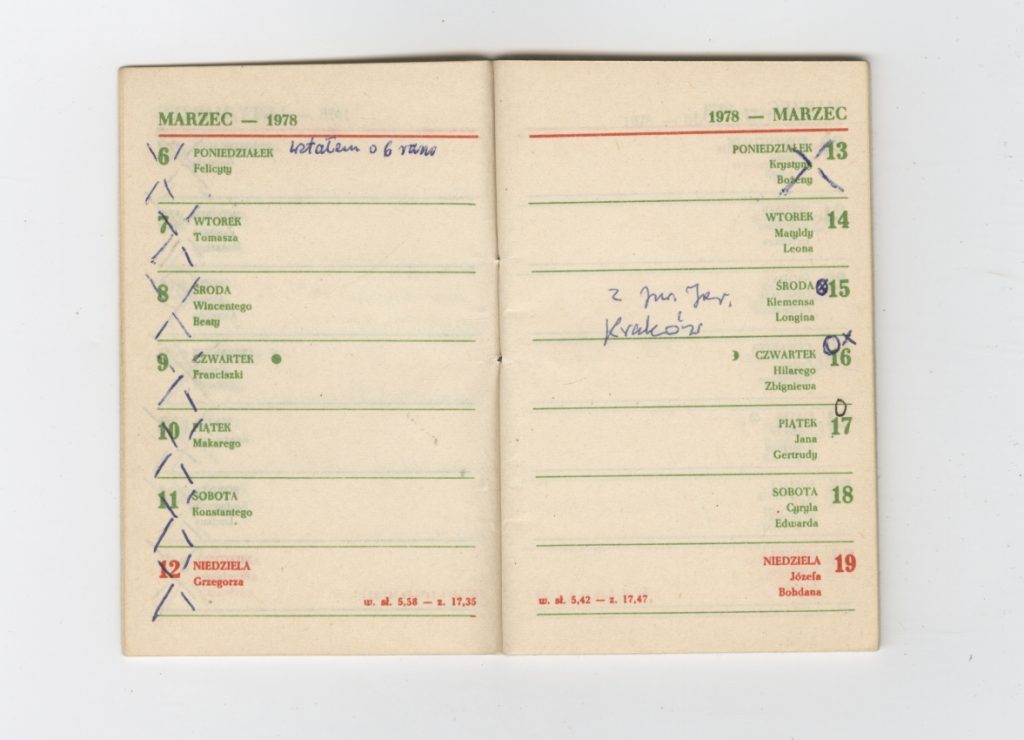 MARZEC — 1978
6 PONIEDZIAŁEK wstałem o 6 rano
Felicyty
7 WTOREK
Tomasza
8 ŚRODA
Wincentego
Beaty
9 CZWARTEK
Franciszki
10 PIĄTEK
Makarego
11 SOBOTA
Konstantego
12 NIEDZIELA
Grzegorza
w. sł. 5,58 — z. 17,35
1978 — MARZEC
PONIEDZIAŁEK 13
Krystyny
Bożeny
WTOREK 14
Matyldy
Leona
ŚRODA 15
Klemensa
Longina
z
Kraków
CZWARTEK 16
Hilarego
Zbigniewa
PIĄTEK 17
Jana
Gertrudy
SOBOTA 18
Cyryla
Edwarda
NIEDZIELA 19
Józefa
Bohdana
w. sł. 5,42 — z. 17,47